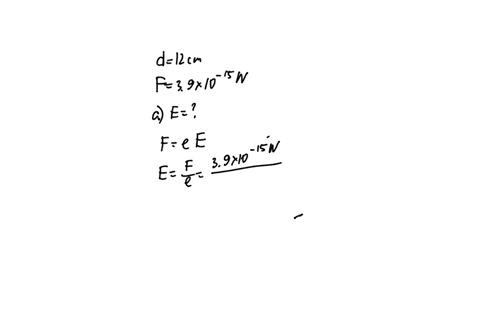 d=12cm
F=3.9×10⁻¹⁵N
a) E=?
F=e E
E=F/e=3.9×10⁻¹⁵N